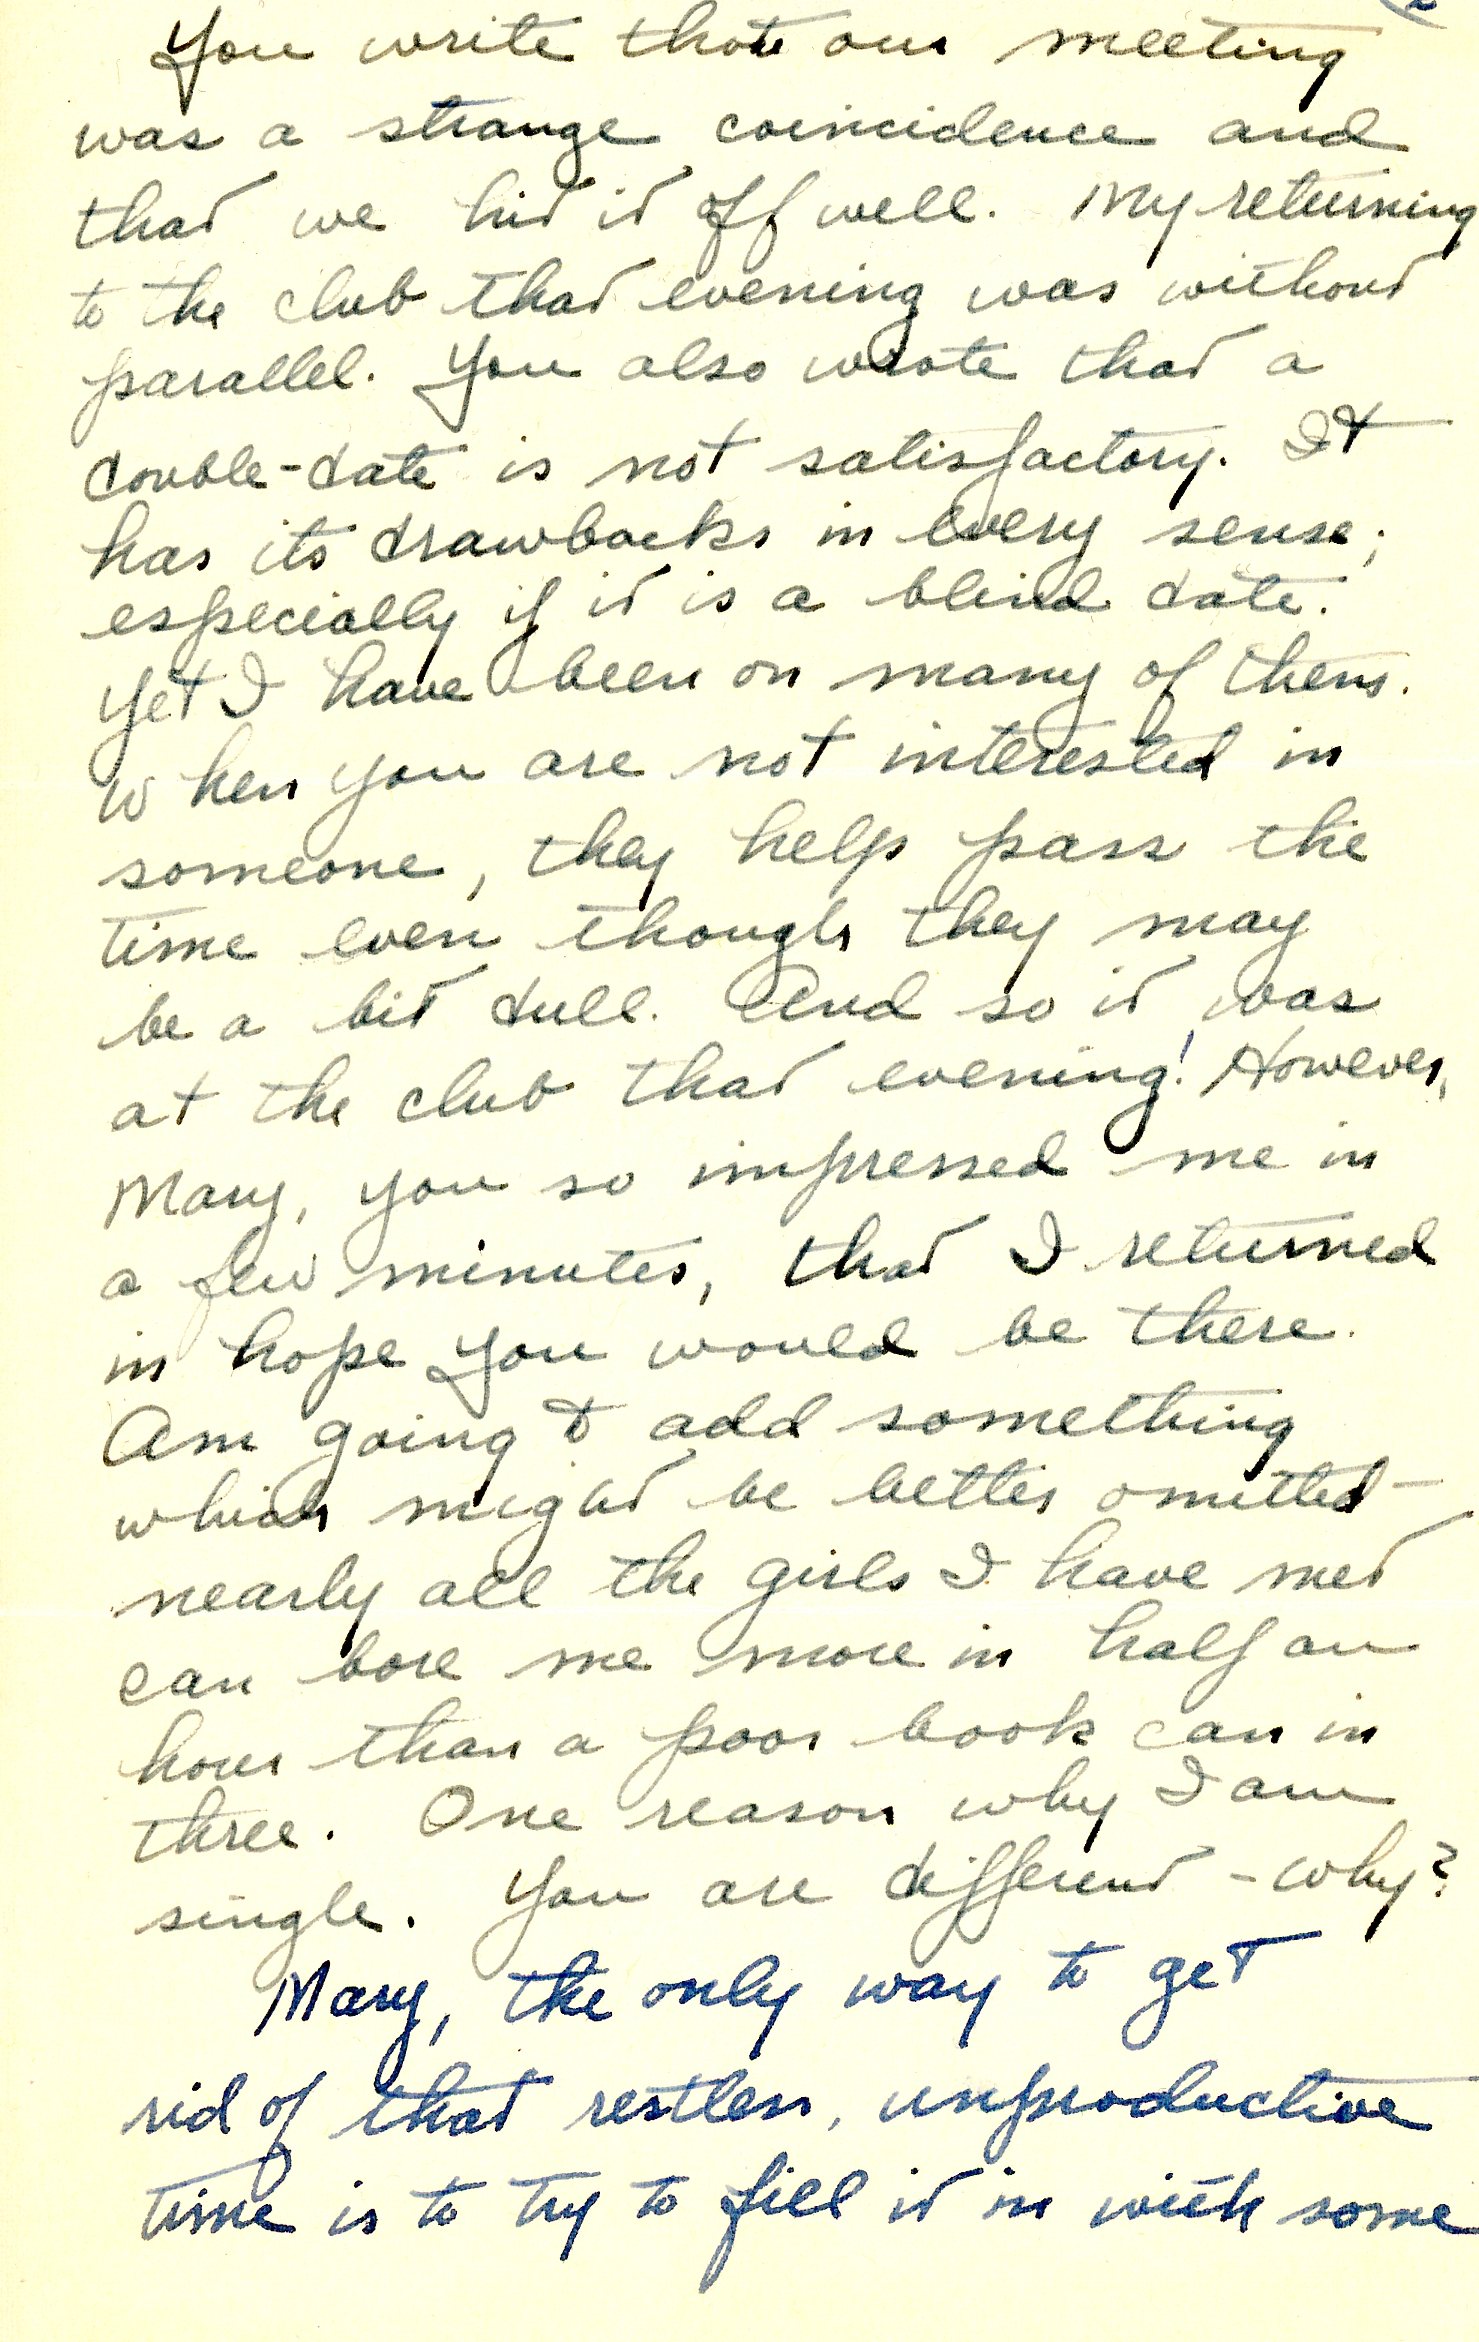 2
You write that our meeting
was a strange coincidence and
that we hit it off well. My returning
to the club that evening was without
parallel. You also wrote that a
double-date is not satisfactory. It
has its drawbacks in every sense;
especially if it is a blind date.
Yet I have been on many of them.
When you are not interested in
someone, they help pass the
time even though they may
be a bit dull. And so it was
at the club that evening! However,
Mary, you so impressed me in
a few minutes, that I returned
in hope you would be there.
Am going to add something
which might be better omitted -
nearly all the girls I have met
can bore me more in half an
hour than a poor book can in
three. One reason why I am
single. You are different - why?
Mary, the only way to get
rid of that restless, unproductive
time is to try to fill it in with some